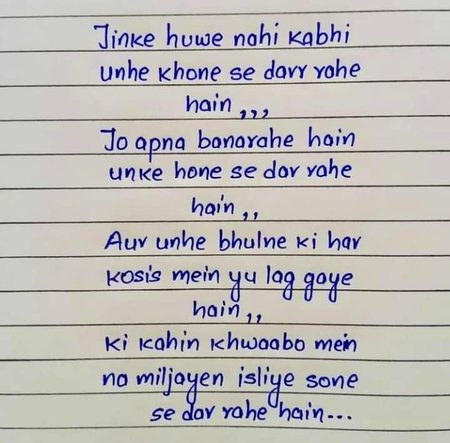 Jinke huwe nahi kabhi
unhe khone se darr rahe
hain ,,,
Jo apna banarahe hain
unke hone se dar rahe
hain ,,
Aur unhe bhulne ki har
kosis mein yu lag gaye
hain ,,
ki kahin khwaabo mein
na miljayen isliye sone
se dar rahe hain...